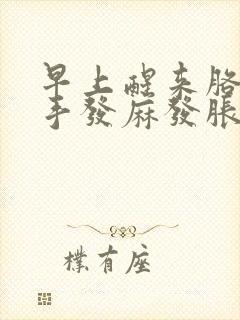 早上醒来胳
手發麻發脹
樸有座